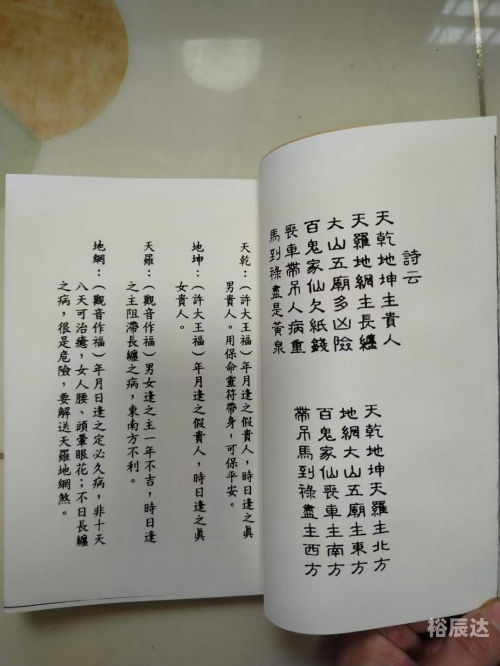 詩云
天乾地坤主貴人
天羅地網主長纏
大山五廟多凶險
百鬼家仙欠紙錢
喪車帶吊人病重
馬到祿盡是黃泉
天乾地坤天羅主北方
地網大山五廟主東方
百鬼家仙喪車主南方
帶吊馬到祿盡主西方
天乾：（許大王福）年月逢之假貴人，時日逢之眞
男貴人。用保命靈符帶身，可保平安。
地坤：（許大王福）年月逢之假貴人，時日逢之眞
女貴人。
天羅：（觀音作福）男女逢之主一年不吉，時日逢
之主阻滯長纏之病，東南方不利。
地網：（觀音作福）年月日逢之定必久病，非十天
八天可治癒，女人腰、頭暈眼花；不日長纏
之病，很是危險，要解送天羅地網煞。
裕辰达